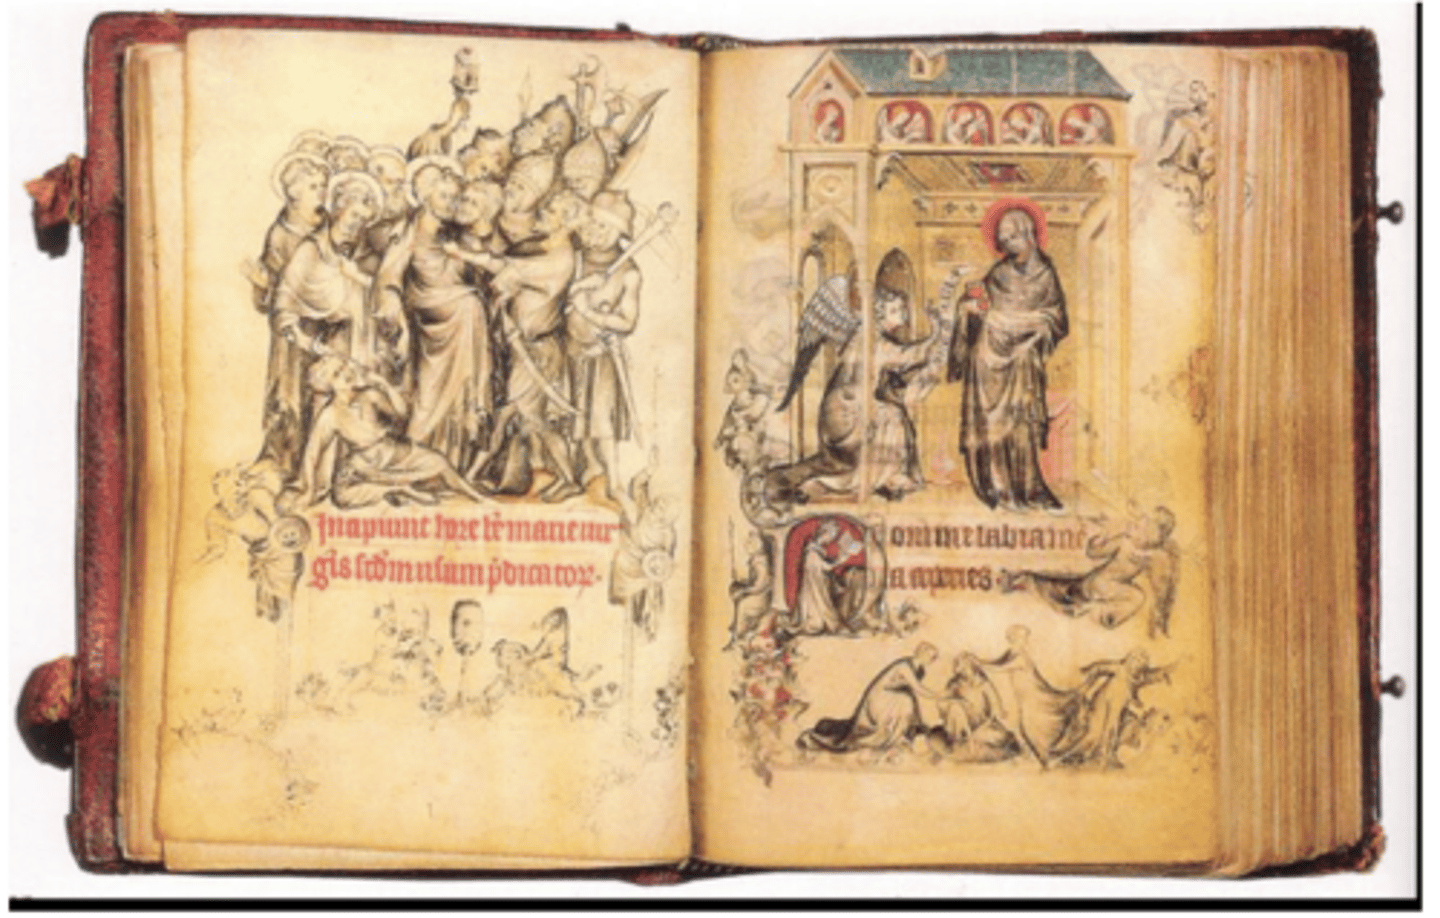 Incipiunt hore bte marie uir
gis scdm usum pdicator.
Domine labia me
a aperies